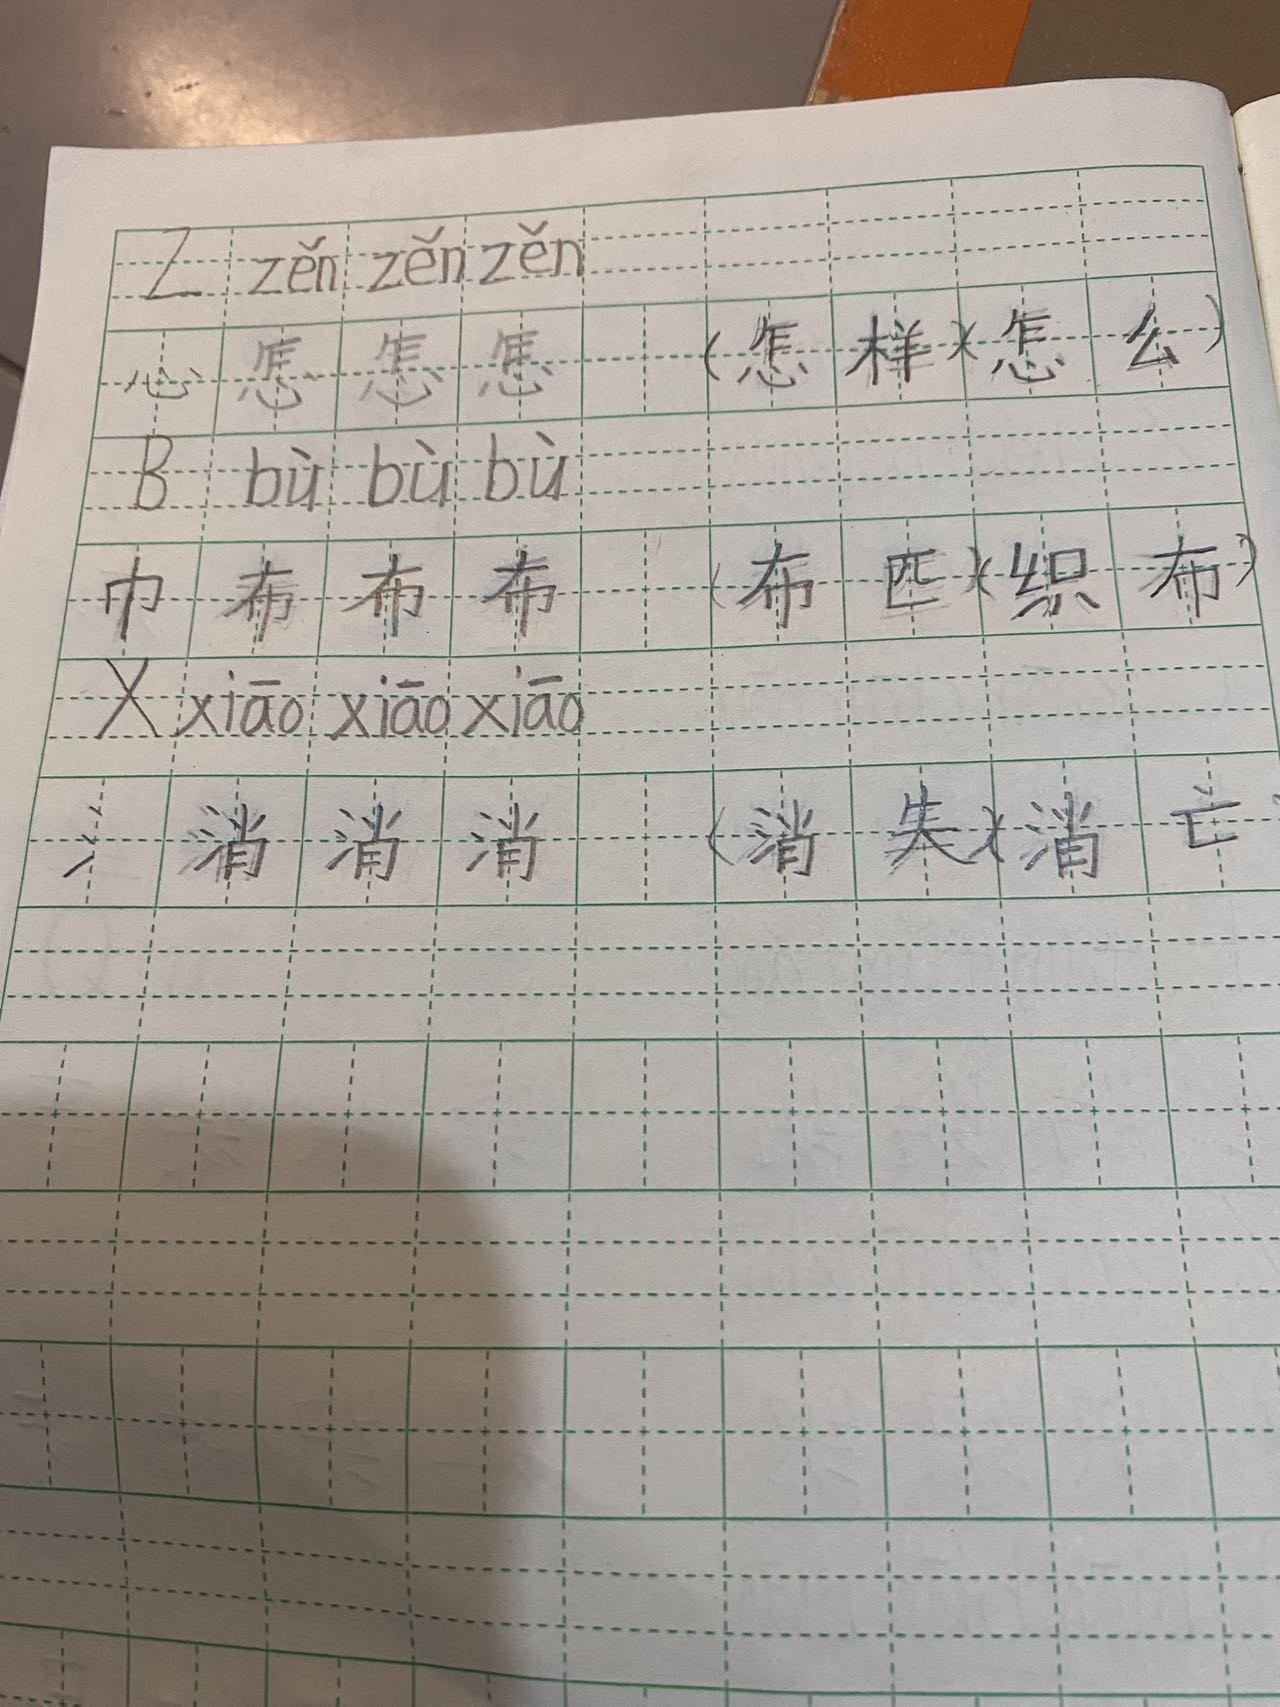 Z zěn zěn zěn
心 怎 怎 怎 (怎样)(怎么)
B bù bù bù
巾 布 布 布 (布匹)(织布)
X xiāo xiāo xiāo
氵 消 消 消 (消失)(消亡)